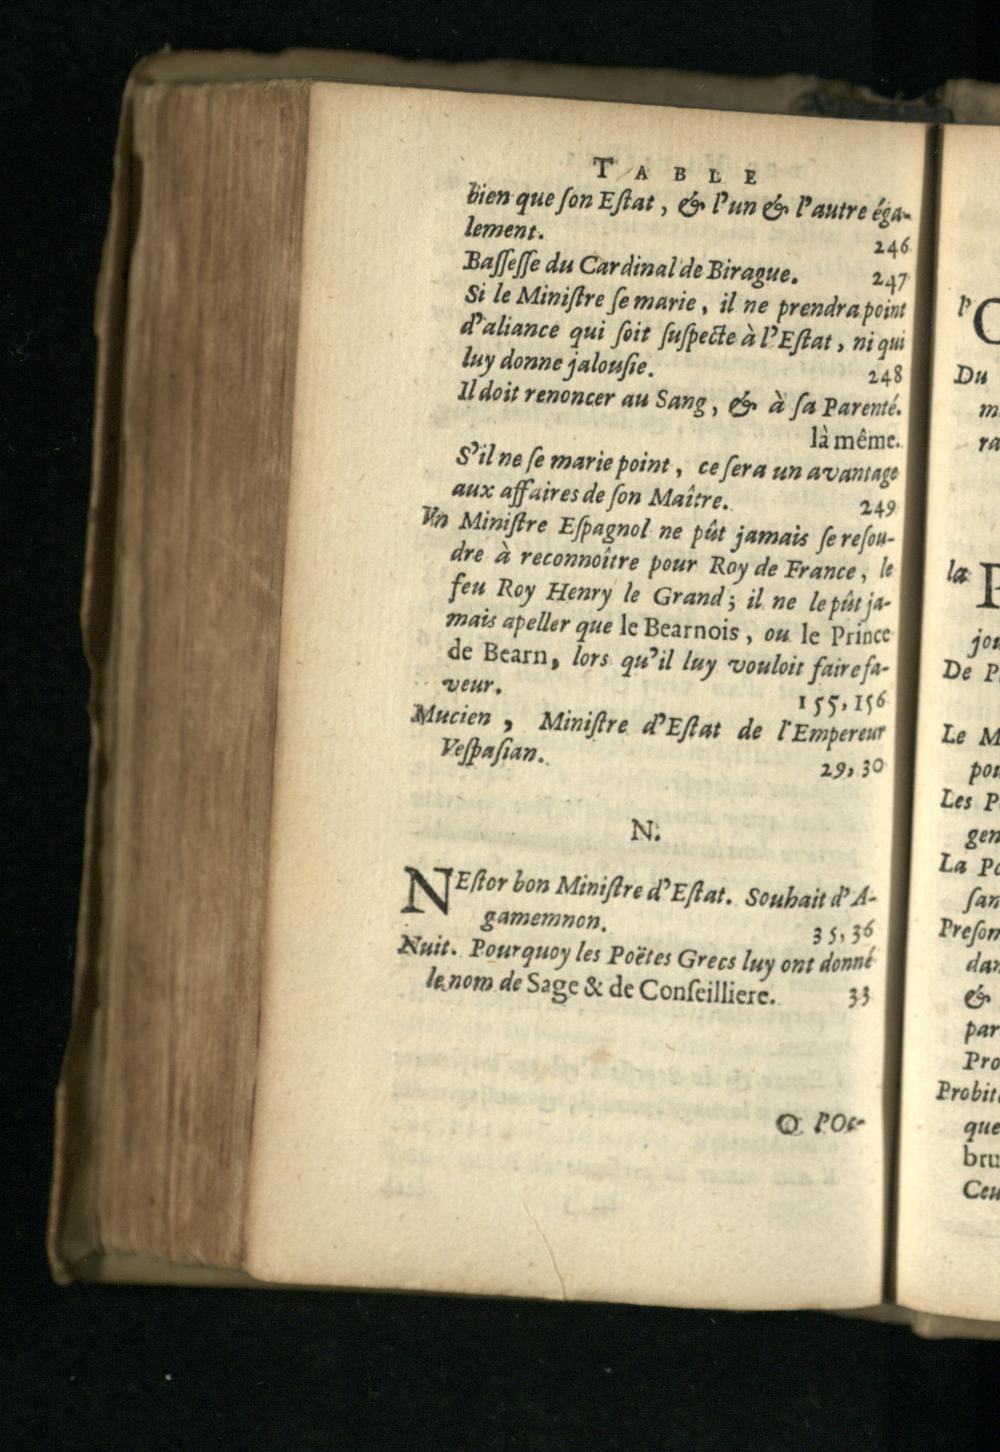 TABLE
bien que ſon Eſtat, & l'un & l'autre éga-
lement. 246
Baſſeſſe du Cardinal de Birague. 247
Si le Miniſtre ſe marie, il ne prendra point
d'aliance qui ſoit ſuſpecte à l'Eſtat, ni qui
luy donne jalouſie. 248
Il doit renoncer au Sang, & à ſa Parenté.
là même.
S'il ne ſe marie point, ce ſera un avantage
aux affaires de ſon Maître. 249
Vn Miniſtre Eſpagnol ne pût jamais ſe reſou-
dre à reconnoître pour Roy de France, le
feu Roy Henry le Grand; il ne le pût ja-
mais apeller que le Bearnois, ou le Prince
de Bearn, lors qu'il luy vouloit faire fa-
veur. 155, 156
Mucien, Miniſtre d'Eſtat de l'Empereur
Veſpaſian. 29, 30
N.
NEſtor bon Miniſtre d'Eſtat. Souhait d'A-
gamemnon. 35, 36
Nuit. Pourquoy les Poëtes Grecs luy ont donné
le nom de Sage & de Conſeilliere. 33
O l'Oc-
Du
m
ra
la P
jou
De P
Le M
pou
Les P
gen
La Po
ſan
Preſom
dan
&
par
Pro
Probit
que
bru
Ceu